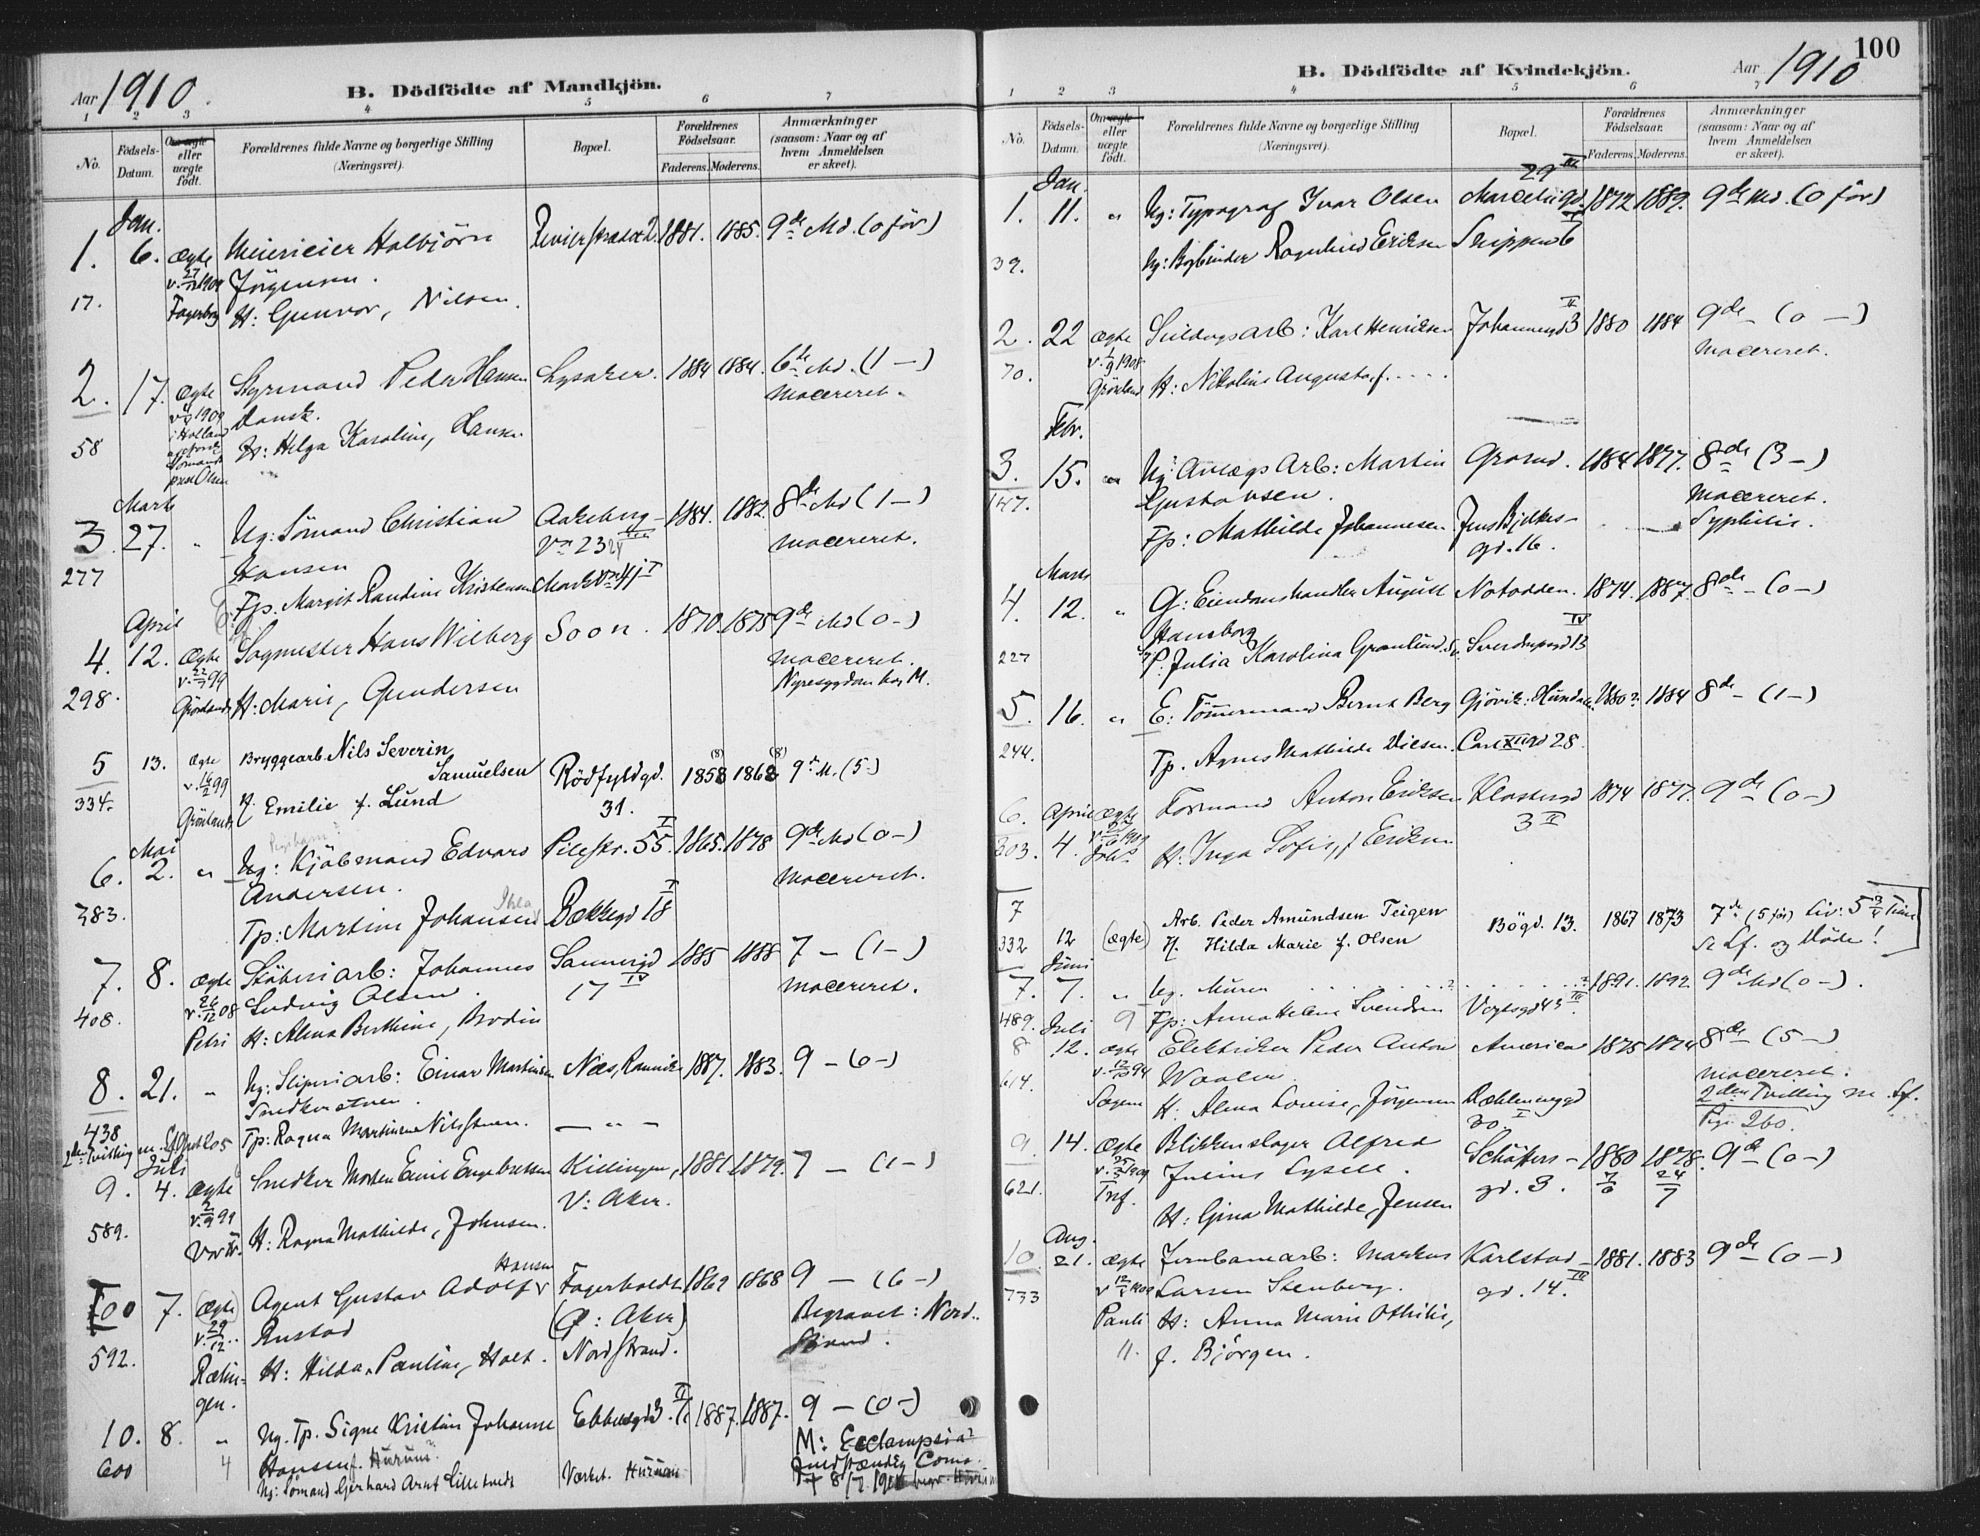 Aar 1910.
B. Dödfödte af Mandkjön.
1 2 3 4 5 6 7
No.
Födsels-Datum.
Om ægte eller uægte födt.
Forældrenes fulde Navne og borgerlige Stilling (Næringsvei).
Bopæl.
Forældrenes Födselsaar.
Faderens. Moderens.
Anmærkninger (saasom: Naar og af hvem Anmeldelsen er skeet).
Jan.
1. 6. Ægte Meierieier Halbjörn 1881. 1885. 9de Md. (0 för)
v. 27/12 1909 Jörgensen.
17. Fagerborg H: Gunvor, Nilsen.
2. 17. Ægte Styrmand Peder Hansen Lysaker. 1884 1884. 6te Md. (1 –)
1909 dansk. macereret.
i Holland
58 H: Helga Karoline, Hansen
Olsen
Marts
3 27. " Ug: Sömand Christian Aakeberg- 1884. 1882. 8de Md (1 –)
Hansen Vn 23 macereret.
277 Fp. Margit Randine Kristensen Markvn 41 I
April
4. 12. Ægte Sagmester Hans Wilberg Soon. 1870. 1875 9de Md (0 –)
v. 99 macereret.
Nyresygdom hos M.
298. Grönlands H: Marie, Gundersen
5 13. Ægte Bryggearb Nils Severin
v. 99 Samuelsen Rödfyldgd. 1858 1868 9de M. (5 –)
334. Grönlands H. Emilie f. Lund 31.
Mai
6. 2. " Ug: Kjöbmand Edvard Pilestr. 55. I 1865. 1878 9de Md (0 –)
Andersen. macereret.
383. Fp: Martine Johansen Bækkegd 18 I
7. 8. Ægte Støberiarb: Johannes Sannergd 1885 1888 7 – (1 –)
v. 26/12 08 Ludvig Olsen. 17 IV macereret.
408. Petri H: Alma Berthine, Brodin
8. 21. " Ug: Sliperiarb: Einar Martinsen Næs, 1887. 1883. 9 – (0 –)
438 Fp: Ragna Martinsen – " –
2den Tvilling
Juli
9. 4. Ægte Snedker Morten Emil Engebretsen Killingen, 1881. 1879. 7 – (1 –)
v. 99 V: Aker.
589. Vor Fr. H: Ragna Mathilde, Johnsen.
Hansen
7. (Ægte) Agent Gustav Adolf v Fagerholdt 1869 1868 9 – (6 –)
v. 29/12 .. Rustad (V: Aker) Begravet: Nord-
592. Rælin- H: Hilda Pauline, Holt. Nordstrand. strand.
gen.
10. 8. " Ug. Fp. Signe Kristine Johanne Ebbelsgd 3. II 1887. 1887. 9 – (0 –)
600 4 Hansen f. Hurum M: Ecclampsia
Indstændig Coma.
Ug: Sömand Gerhard Arnt Værket. Hurum † 8/7 1910 begr. Hurum
100
Aar 1910
B. Dödfödte af Kvindekjön.
1 2 3 4 5 6 7
No.
Födsels-Datum.
Om ægte eller uægte födt.
Forældrenes fulde Navne og borgerlige Stilling (Næringsvei).
Bopæl.
Forældrenes Födselsaar.
Faderens. Moderens.
Anmærkninger (saasom: Naar og af hvem Anmeldelsen er skeet).
Jan. 29 III
1. 11. " Ug: Typograf Ivar Olsen 1872 1889. 9de Md. (0 för)
39. Ug: Bogbinder Ragnhild Eriksen Snippen 6
2. 22 Ægte Karl Henriksen Johannesgd 3 II 1880 1884 9de – (0 –)
v. 1908 macereret.
70. Grönland H: Nikoline Augusta f. ....
Febr.
3. 15. " Ug: Anlægsarb: Martin Grorud. 1884 1877. 8de (3 –)
147. Gustavsen. macereret.
Fp: Mathilde Johannesen Jens Bjelkes- Syphilis.
gd. 16.
Marts
4. 12. " G: Eiendomshandler August Notodden. 1874. 1887 8de – (0 –)
Hansborg IV
227 Fp. Julia Karolina Granlund. Sv. Sverdrupsgd 13
5. 16. " E: Tömmermand Bernt Berg Gjövik: Hundalen. 1880? 1884 8de – (1 –)
244. Fp. Agnes Mathilde Nilsen. Carl XII gd 28.
6. April Ægte Formand Anton Eriksen Klostergd 1874 1877. 9de – (0 –)
303. 4. 1909 H: Inga Sofie, f. Eriksen 3 II
7 Arb. Peder Amundsen Teigen Bögd. 13. 1867 1873 7de (5 för) Liv: 5 3/4 Time
332 12 (Ægte) H. Hilda Marie f. Olsen Se Lf. og Döde!
Juni
7. 7. " Ug. Murer ....? ....? 1891. 1892. 9de Md (0 –).
489. 9 Fp: Anna Helene Svendsen Vogtsgd 43 III
Juli
8 12. Ægte Elektriker Peder Anton America 1875 1874 8de – (5 –)
v. 94 Waaler macereret.
614. Sagene H: Alma Lovise, Jörgensen Dælenenggd 2den Tvilling m. Lf.
30. I Pag: 260.
9. 14. Ægte Blikkenslager Alfred Schöffers- 1880 1878. 9de (0 –)
v. 1909 Julius Lysell. gd. 3. 7/6 24/7
621. Tref. H: Gina Mathilde, Jensen
Aug.
10. 21. Ægte Jernbanearb: Markus Karlstad- 1881. 1883 9de – (0 –)
733 v. 1909 Larsen Stenberg. gd. 14. III
Pauli H: Anna Marie Othilie,
11. f. Björgen.